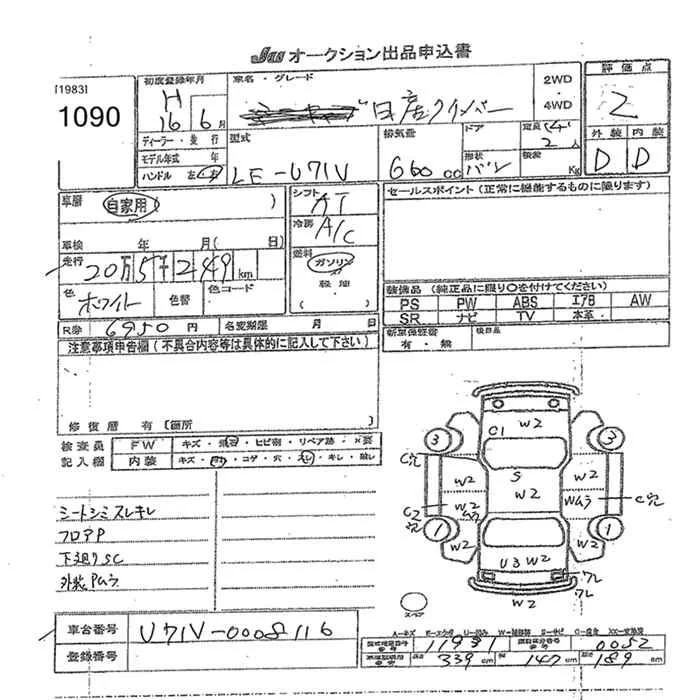 JU オークション出品申込書
[1983]
1090
初度登録年月
H
16 年 6 月
ディーラー・並行
モデル年式 年
ハンドル 左・右
車名・グレード
日産クリッパー
2WD
・
4WD
評価点
2
外装 内装
D D
型式
LE-U71V
排気量
660 cc
ドア
形状
バン
定員
2人
積載
Kg
車歴
自家用
車検 年 月( 日)
走行
20万5千249 km
色
ホワイト
色替
色コード
シフト
AT
冷房
A/C
燃料
ガソリン
軽油
セールスポイント(正常に機能するものに限ります)
装備品(純正品に限り○を付けてください)
PS PW ABS エアB AW
SR ナビ TV 本革
新車保証書
有・無
後日品
R券 6950 円
名変期限 月 日
注意事項申告欄(不具合内容等は具体的に記入して下さい)
修復歴 有 [箇所 ]
検査員
記入欄
FW キズ・飛石・ヒビ割・リペア跡・×要
内装 キズ・コゲ・穴・スレ・キレ・破レ
シートシミスレキレ
フロアP
下廻りSC
外装Pムラ
車台番号
U71V-0008116
登録番号
C1 W2
3 3
C穴
W2 S W2
W2
W2 ムラ
Wムラ
C穴
C2 穴
1 1
W2 W2
U3 W2
ワレ
ワレ
W2
スペア
11991
0052
339 cm 147 cm 189 cm